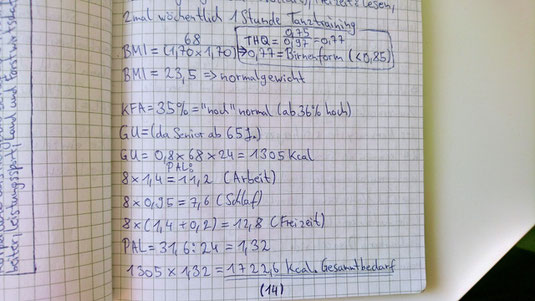 Freizeit: Lesen,
2mal wöchentlich 1 Stunde Tanztraining
THQ = 0,75 / 0,97 = 0,77
=> 0,77 = Birnenform (< 0,85)
68
BMI = (1,70 x 1,70)
BMI = 23,5 => normalgewicht
KFA = 35% = "noch" normal (ab 36% hoch)
GU = (da Senior ab 65 J.)
GU = 0,8 x 68 x 24 = 1305 kcal
PAL:
8 x 1,4 = 11,2 (Arbeit)
8 x 0,95 = 7,6 (Schlaf)
8 x (1,4 + 0,2) = 12,8 (Freizeit)
PAL = 31,6 : 24 = 1,32
1305 x 1,32 = 1722,6 kcal. Gesamtbedarf
(14)